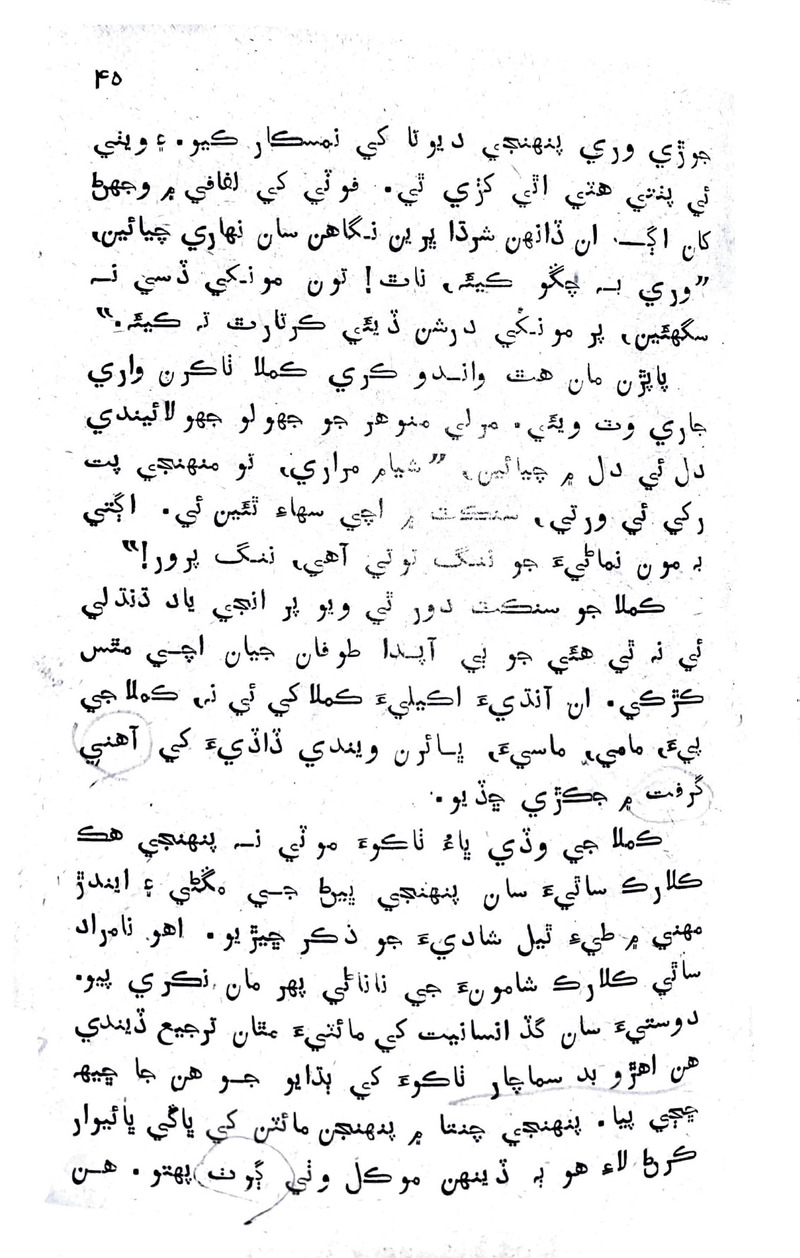 ۴۵
جوڙي وري پنهنجي ديوتا کي نمسڪار ڪيو. ۽ ويني
ئي پٺتي هٽي اٿي کڙي ٿي. فوٽي کي لفافي ۾ وجهڻ
کان اڳـ ان ڏانهن شرڌا ڀرين نگاهن سان نهاري چيائين،
”وري بہ چڱو ڪيئہ، ناٿ! تون مونکي ڏسي نہ
سگهئين، پر مونکي درشن ڏيئي ڪرتارٿ تہ ڪيئہ.“
پاپڙن مان هٿ واندو ڪري ڪملا ٺاڪرن واري
جاري وٽ ويئي. مرلي منوهر جو جهولو جهولائيندي
دل ئي دل ۾ چيائين، ”شيام مراري، تو منهنجي پت
رکي ئي ورتي، سنڪٽ ۾ اچي سهاءِ ٿئين ئي. اڳتي
بہ مون نماڻيءَ جو ننگ توتي آهي، ننگ پرور!“
ڪملا جو سنڪٽ دور ٿي ويو پر انجي ياد ڌنڌلي
ئي نہ ٿي هئي جو ٻي آپدا طوفان جيان اچي مٿس
ڪڙڪي. ان آنڌيءَ اڪيليءَ ڪملا کي ئي نہ، ڪملا جي
پيءُ، مامي، ماسيءَ، ڀائرن ويندي ڏاڏيءَ کي آهني
گرفت ۾ جڪڙي ڇڏيو.
ڪملا جي وڏي ڀاءُ ٺاڪوءَ موٽي نہ پنهنجي هڪ
ڪلارڪ ساٿيءَ سان پنهنجي ڀيڻ جي مڱڻي ۽ ايندڙ
مهني ۾ طيءِ ٿيل شاديءَ جو ذڪر ڇيڙيو. اهو نامراد
ساٿي ڪلارڪ شامونءَ جي ناناڻي پهر مان نڪري پيو.
دوستيءَ سان گڏ انسانيت کي مائٽيءَ مٿان ترجيع ڏيندي
هن اهڙو بد سماچار ٺاڪوءَ کي ٻڌايو جو هن جا ڇيهہ
ڇڄي پيا. پنهنجي چنتا ۾ پنهنجن مائٽن کي ڀاڱي ڀائيوار
ڪرڻ لاءِ هو ٻہ ڏينهن موڪل وٺي ڳوٺ پهتو. هن